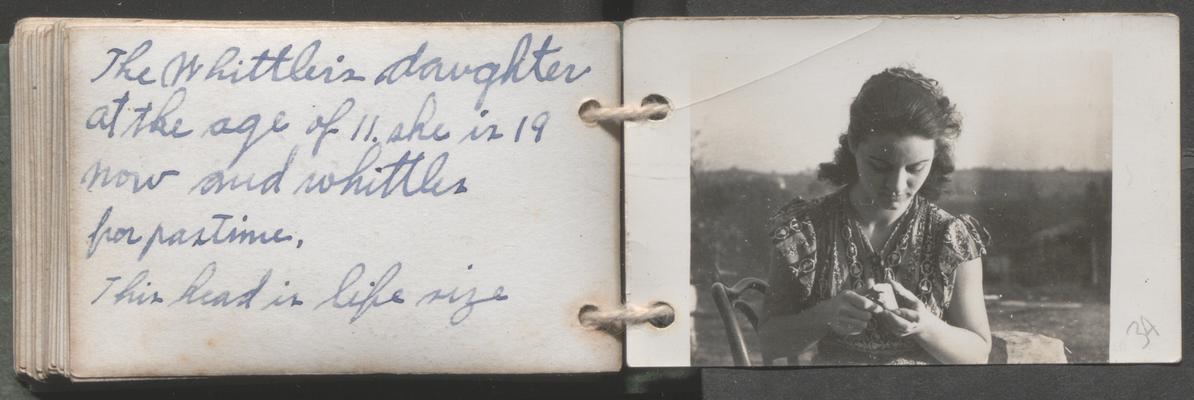 The Whittler's dawghter
at the age of 11. she is 19
now and whittles
for pastime.
This head is life size
34